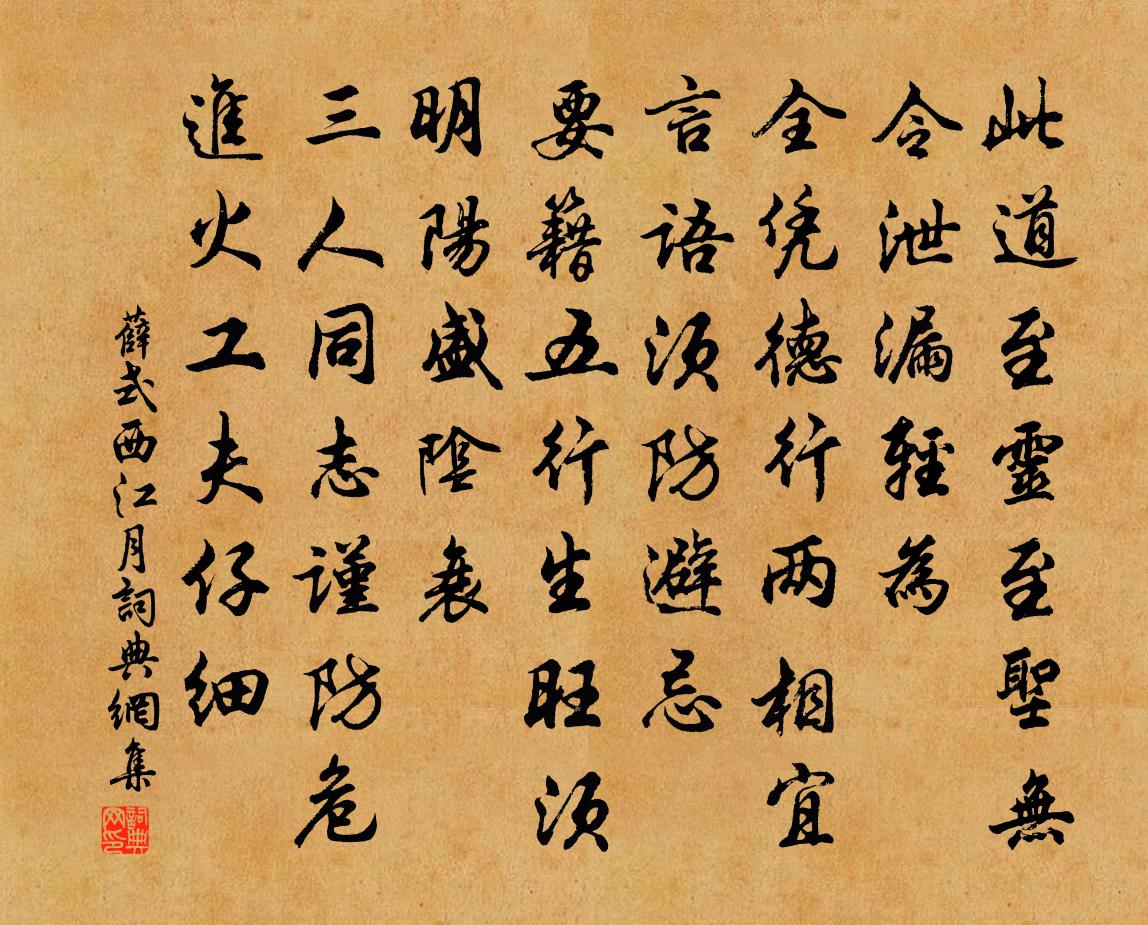 此道至靈至聖無
令泄漏輕為
全凭德行两相宜
言語須防避忌
要籍五行生旺須
明陽盛陰衰
三人同志謹防危
進火工夫仔细
薛式西江月詞典網集
詞典网印